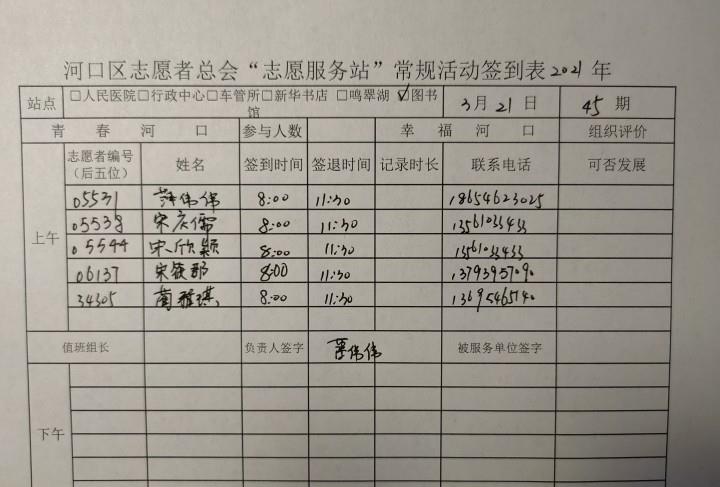 河口区志愿者总会“志愿服务站”常规活动签到表2021年
站点 □人民医院□行政中心□车管所□新华书店 □鸣翠湖 ☑图书馆 3月21日 45期
青春河口 参与人数 幸福河口 组织评价
上午 志愿者编号（后五位） 姓名 签到时间 签退时间 记录时长 联系电话 可否发展
05531 伟伟 8:00 11:30 18654623025
05538 宋庆儒 8:00 11:30 13561033433
05544 宋欣颖 8:00 11:30 13561033433
06137 宋筱郡 8:00 11:30 13793957090
34305 雅琪 8:00 11:30 13695465140
值班组长 负责人签字 伟伟 被服务单位签字
下午